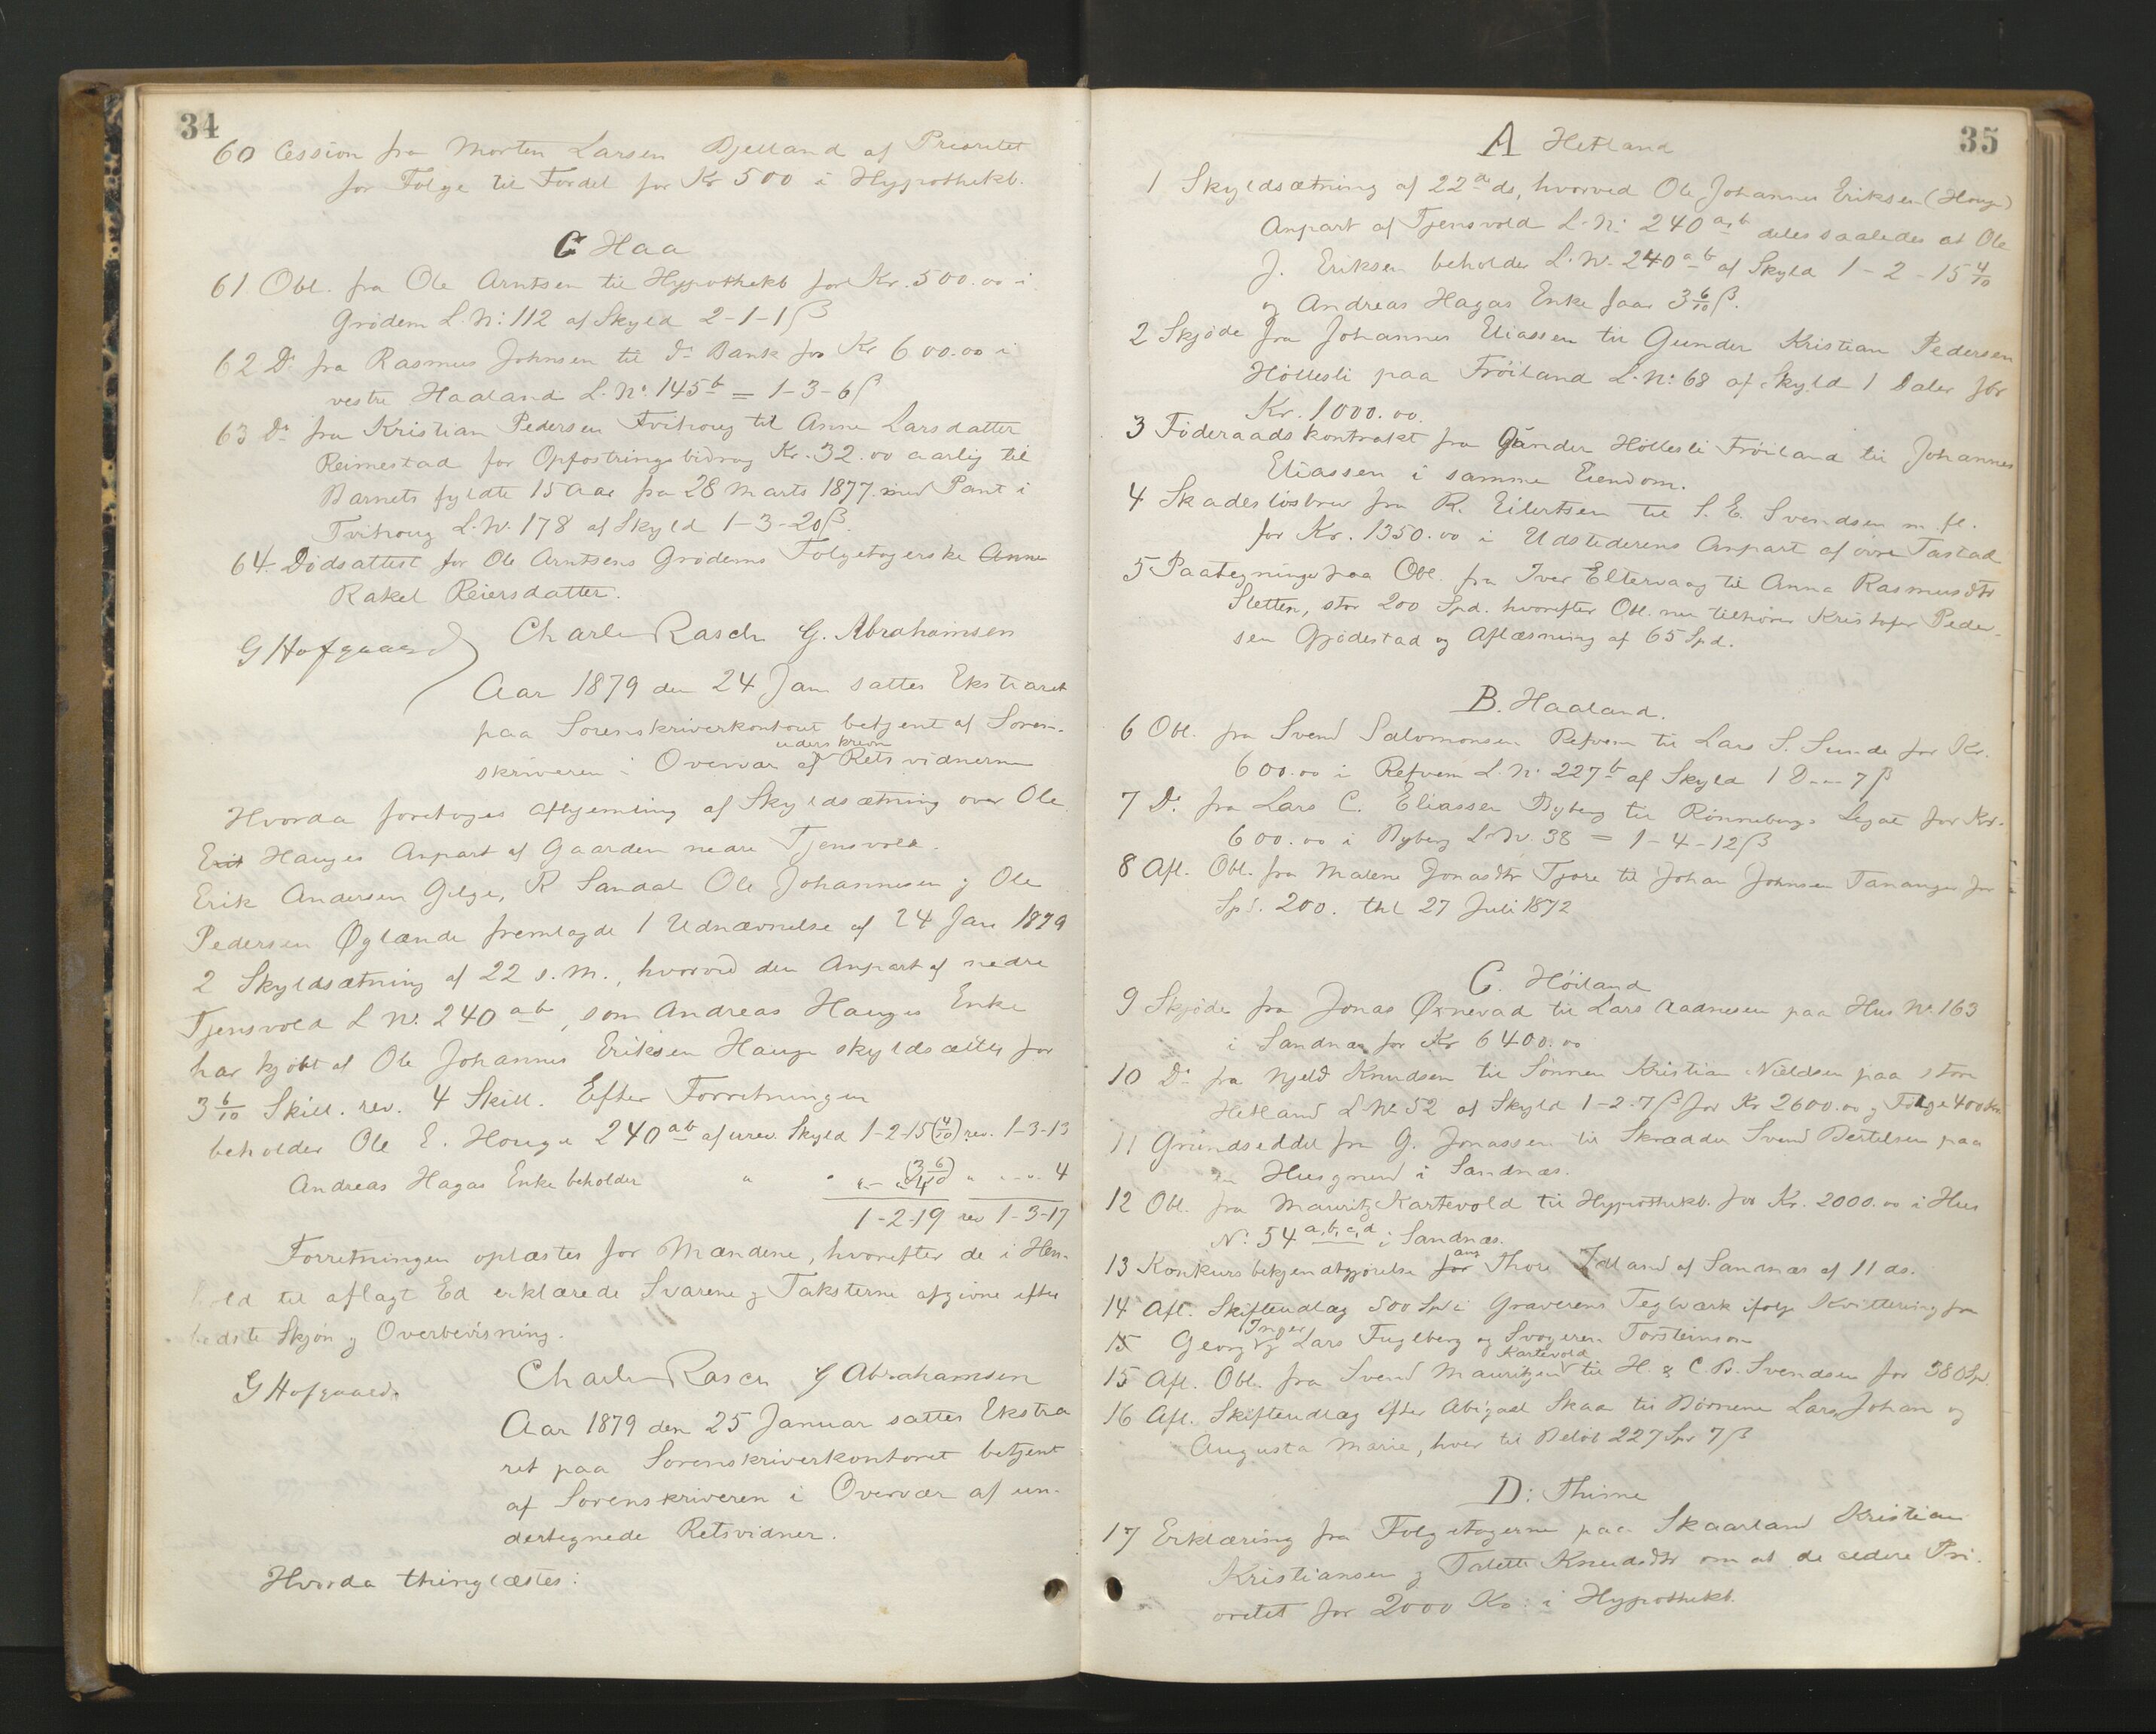 34
60 Cession fra Morten Larsen Bjelland af Prioritet
for Følge til Fordel for Kr 500 i Hypothekb.
C Haa
61 Obl. fra Ole Arntsen til Hypothekb for Kr. 500.00 i
Grödem L. N: 112 af Skyld 2-1-1 β
62 Do fra Rasmus Johnsen til do Bank for Kr 600.00 i
vestre Haaland L. No. 145b = 1-3-6 β
63 do fra Kristian Pedersen Tvihoug til Anne Larsdatter
Reimestad for Opfostringsbidrag Kr. 32.00 aarlig til
Barnets fyldte 15 Aar fra 28 Marts 1877 med Pant i
Tvihoug L. N. 178 af Skyld 1-3-20 β.
64. Dødsattest for Ole Arntsens Grødems Følgetagerske Anne
Rakel Reiersdatter.
G Hofgaard Charles Rasch G. Abrahamsen
Aar 1879 den 24 Jan sattes Ekstraret
paa Sorenskriverkontoret betjent af Soren-
skriveren i Overvær af underskrevne Retsvidnerne
Hvorda foretoges Afhjemling af Skyldsætning over Ole
Erik Hauges Anpart af Gaarden nedre Tjensvold.
Erik Andersen Gilje, R Sandal Ole Johannesen & Ole
Pedersen Øglænde fremlagde 1 Udnævnelse af 24 Jan 1879
2 Skyldsætning af 22 s. M., hvorved den Anpart af nedre
Tjensvold L N. 240 ab, som Andreas Hauges Enke
har kjøbt af Ole Johannes Eriksen Hauge skyldsættes for
3 6/10 Skill. rev. 4 Skill. Efter Forretningen
beholder Ole E. Houge 240 ab af urev. Skyld 1-2-15 (4/10) rev. 1-3-13
Andreas Hagas Enke beholder " " "-"-(3 6/10) 4 " "-"- 4
1-2-19 rev 1-3-17
Forretningen oplæstes for Mændene, hvorefter de i Hen-
hold til aflagt Ed erklærede Svarene & Taksterne afgivne efter
bedste Skjøn & Overbevisning.
G Hofgaard. Charles Rasch G Abrahamsen
Aar 1879 den 25 Januar sattes Ekstra
ret paa Sorenskriverkontoret betjent
af Sorenskriveren i Overvær af un-
dertegnede Retsvidner.
Hvorda thinglæstes:
35
A Hetland
1 Skyldsætning af 22de ds, hvorved Ole Johannes Eriksen (Houge)
Anpart af Tjensvold L. N: 240 a,b deles saaledes at Ole
J. Eriksen beholder L. N. 240 a b af Skyld 1-2-15 4/10
og Andreas Hagas Enke faar 3 6/10 β.
2 Skjøde fra Johannes Eliassen til Gunder Kristian Pedersen
Höllesli paa Fröiland L. N: 68 af Skyld 1 Daler for
Kr. 1000.00.
3 Föderaadskontrakt fra Gunder Höllesli Fröiland til Johannes
Eliassen i samme Eiendom.
4 Skadeslösbrev fra R. Eilertsen til S. E. Svendsen m. fl.
for Kr. 1350.00 i Udstederens Anpart af övre Tastad
5 Paategninger paa Obl. fra Iver Eltervaag til Anna Rasmusdtr
Sletten, stor 200 Spd. hvorefter Obl. nu tilhörer Kristofer Peder-
sen Gjödestad og Aflæsning af 65 Spd.
B. Haaland.
6 Obl. fra Svend Salomonsen Refvem til Lars S. Sunde for Kr.
600.00 i Refvem L. N: 227b af Skyld 1 D - " - 7 β
7 Do. fra Lars C. Eliassen Byberg til Rönnebergs Legat for Kr.
600.00 i Byberg L. N. 38 = 1-4-12 β
8 Afl. Obl. fra Malene Jonasdtr Tjore til Johan Johnsen Tananger for
Spd. 200. thl 27 Juli 1872
C. Höiland
9 Skjöde fra Jonas Øxnevad til Lars Aadnesen paa Hus No. 163
i Sandnæs for Kr 6400.00
10 Do fra Njeld Knudsen til Sönnen Kristian Nieldsen paa store
Hetland L No 52 af Skyld 1-2-7 β for Kr 2600.00 & Følge 400 Kr
11 Grundseddel fra G. Jonassen til Skrædder Svend Bertelsen paa
en Husgrund i Sandnæs.
12 Obl. fra Mauritz Kartevold til Hypothekb. for Kr. 2000.00 i Hus
N: 54 a,b,c,d i Sandnæs.
13 Konkursbekjendtgjörelse for ang Thore Idland af Sandnæs af 11 ds.
14 Afl. Skifteudlæg 500 Spd i Graverens Teglværk ifølge Kvittering fra
15 Georg Inger & Lars Fuglberg og Svogeren Torsteinson
15 Afl. Obl. fra Svend Mauritzen Kartevold til H. & C. B. Svendsen for 380 Spd.
16 Afl. Skifteudlæg efter Abigael Skaa til Börnene Lars Johan og
Augusta Marie, hver til Belöb 227 Spd 7 β
D: Thime
17 Erklæring fra Folgetagerne paa Skaarland Kristian
Kristiansen & Talette Knudsdtr om at de cedere Pri-
oritet for 2000 Kr. i Hypothekb.